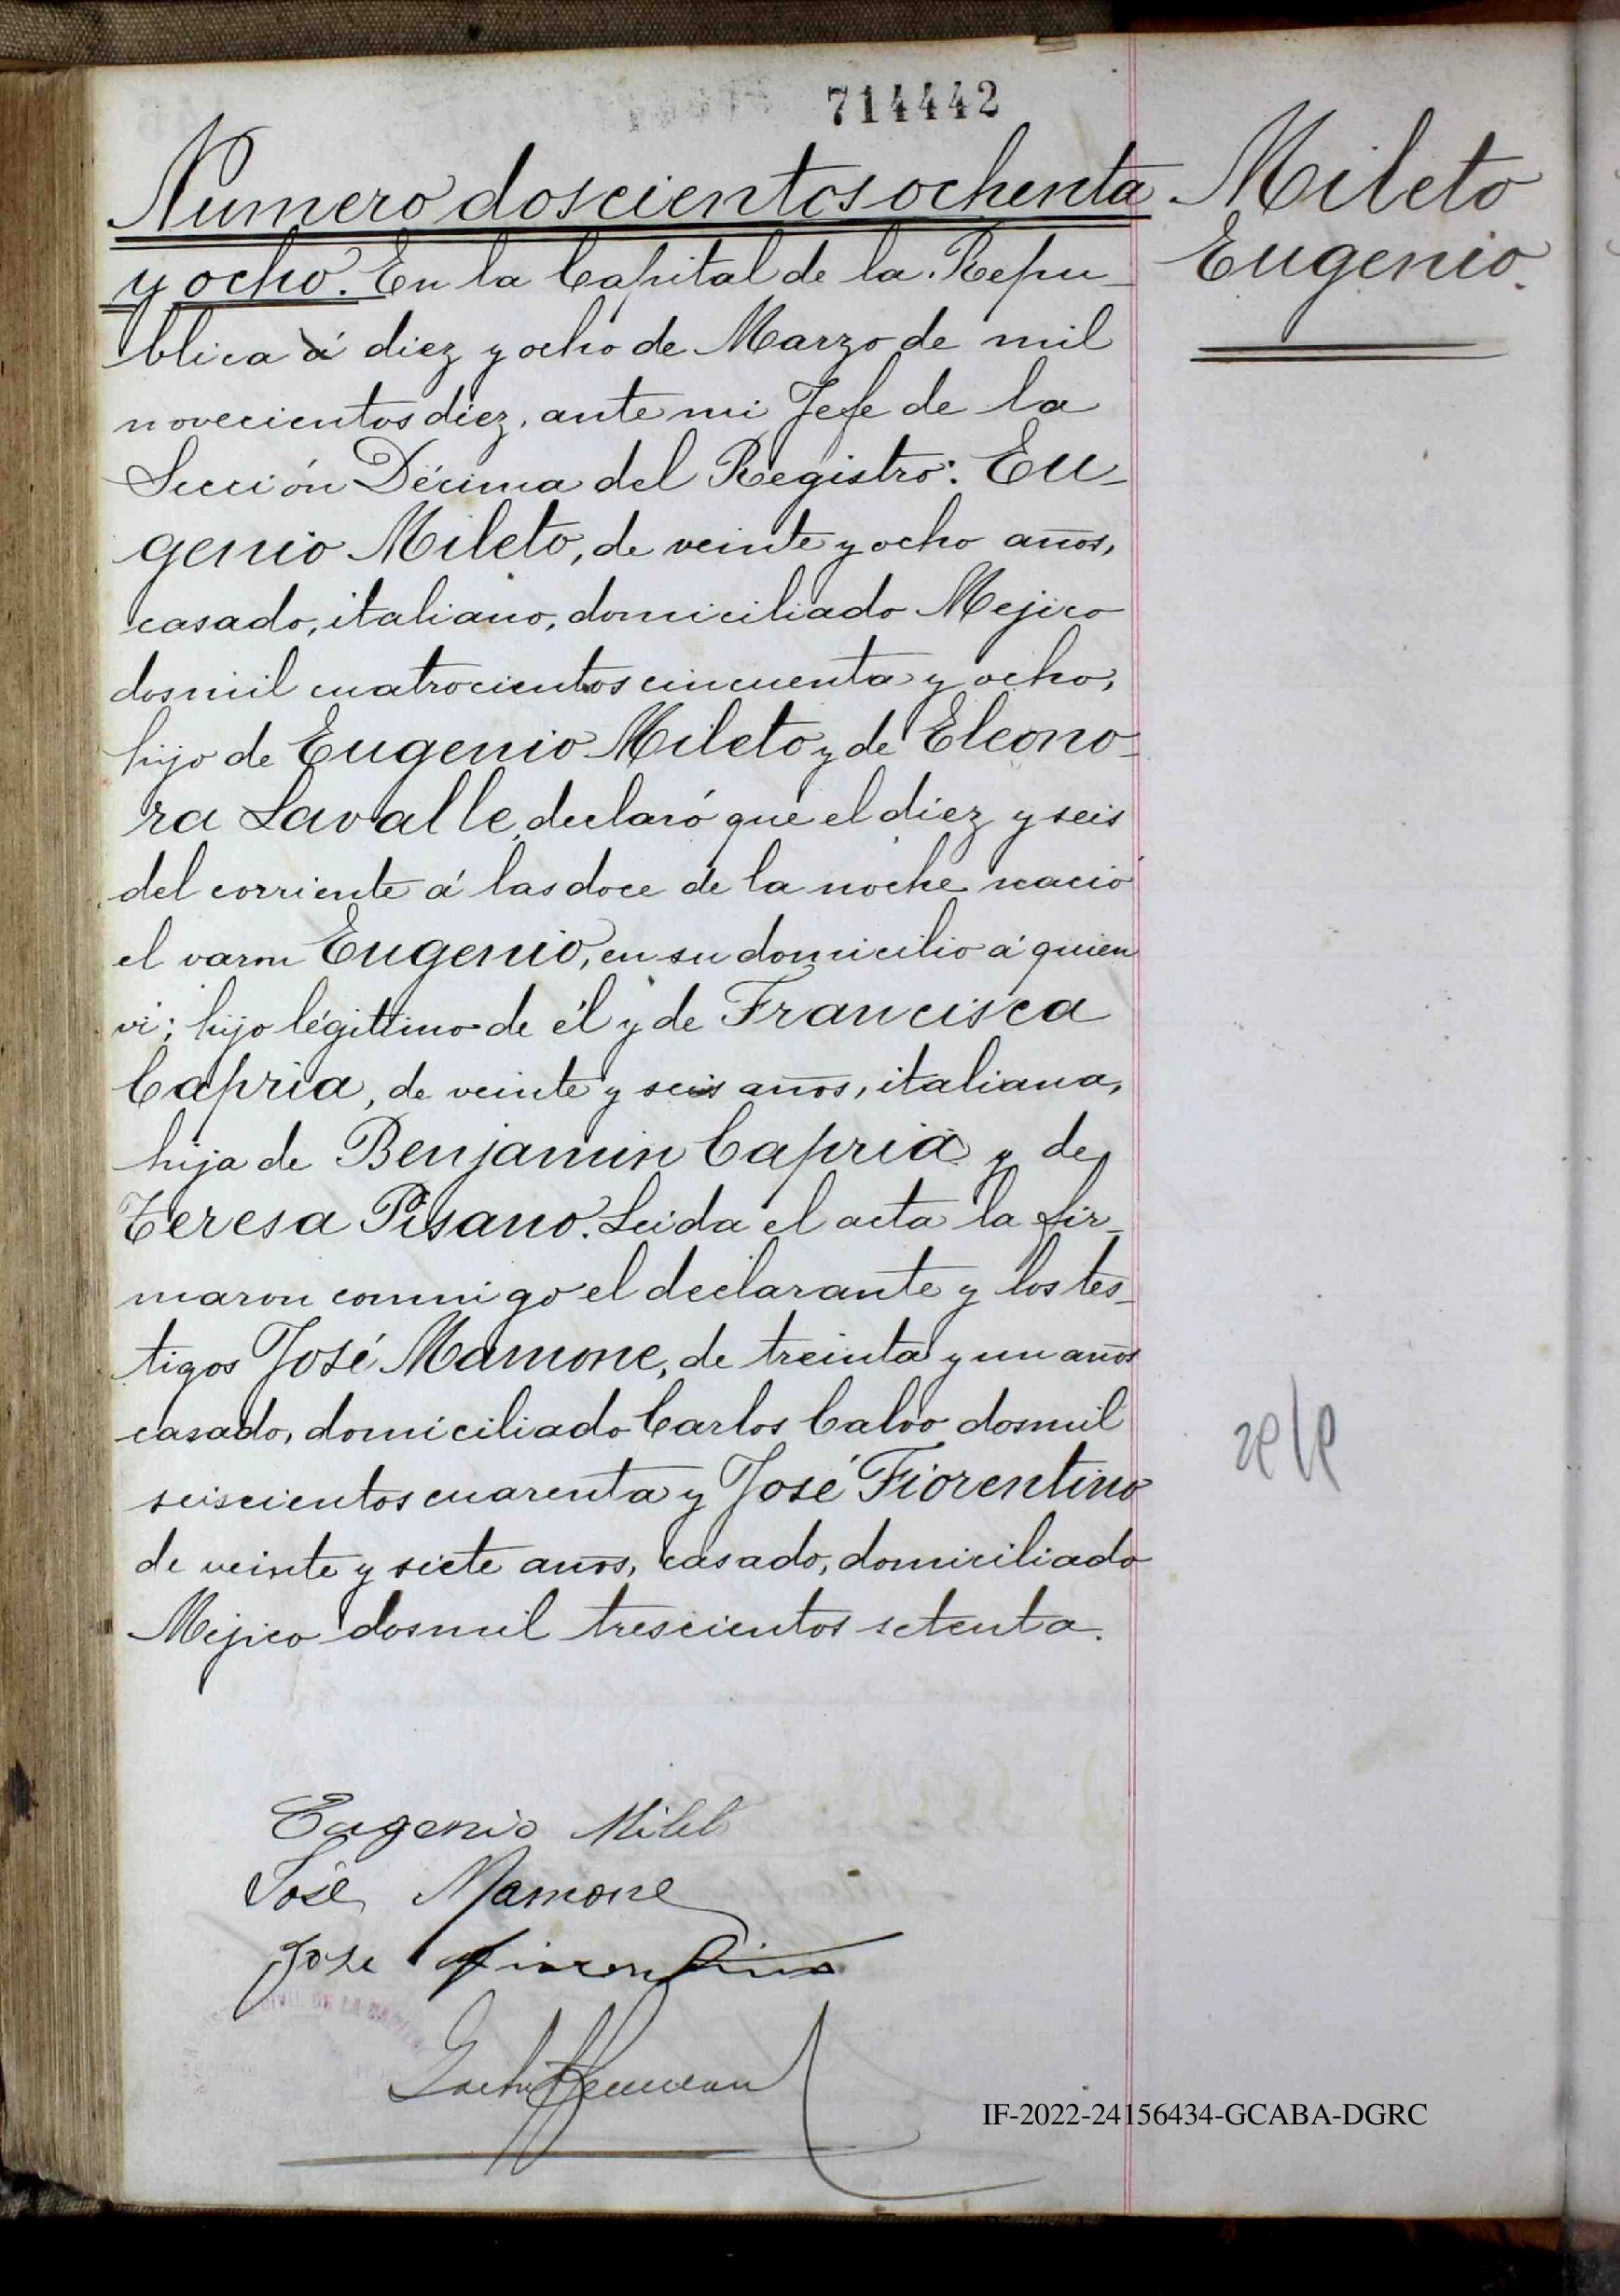 714442
Numero doscientos ochenta
Mileto
Eugenio.
y ocho. En la Capital de la Repu-
blica á diez y ocho de Marzo de mil
novecientos diez, ante mi Jefe de la
Sección Décima del Registro: Eu-
genio Mileto, de veinte y ocho años,
casado, italiano, domiciliado Mejico
dosmil cuatrocientos cincuenta y ocho,
hijo de Eugenio Mileto y de Eleono-
ra Lavalle, declaró que el diez y seis
del corriente á las doce de la noche nació
el varon Eugenio, en su domicilio á quien
vi; hijo légittimo de él y de Francisca
Capria, de veinte y seis años, italiana,
hija de Benjamin Capria y de
Teresa Pisano. Leida el acta la fir-
maron conmigo el declarante y los tes-
tigos José Mamone, de treinta y un años
casado, domiciliado Carlos Calvo dosmil
seiscientos cuarenta y José Fiorentino
de veinte y siete años, casado, domiciliado
Mejico dosmil trescientos setenta.
Eugenio Milet
José Mamone
Jose Fiorentino
CIVIL DE LA
IF-2022-24156434-GCABA-DGRC